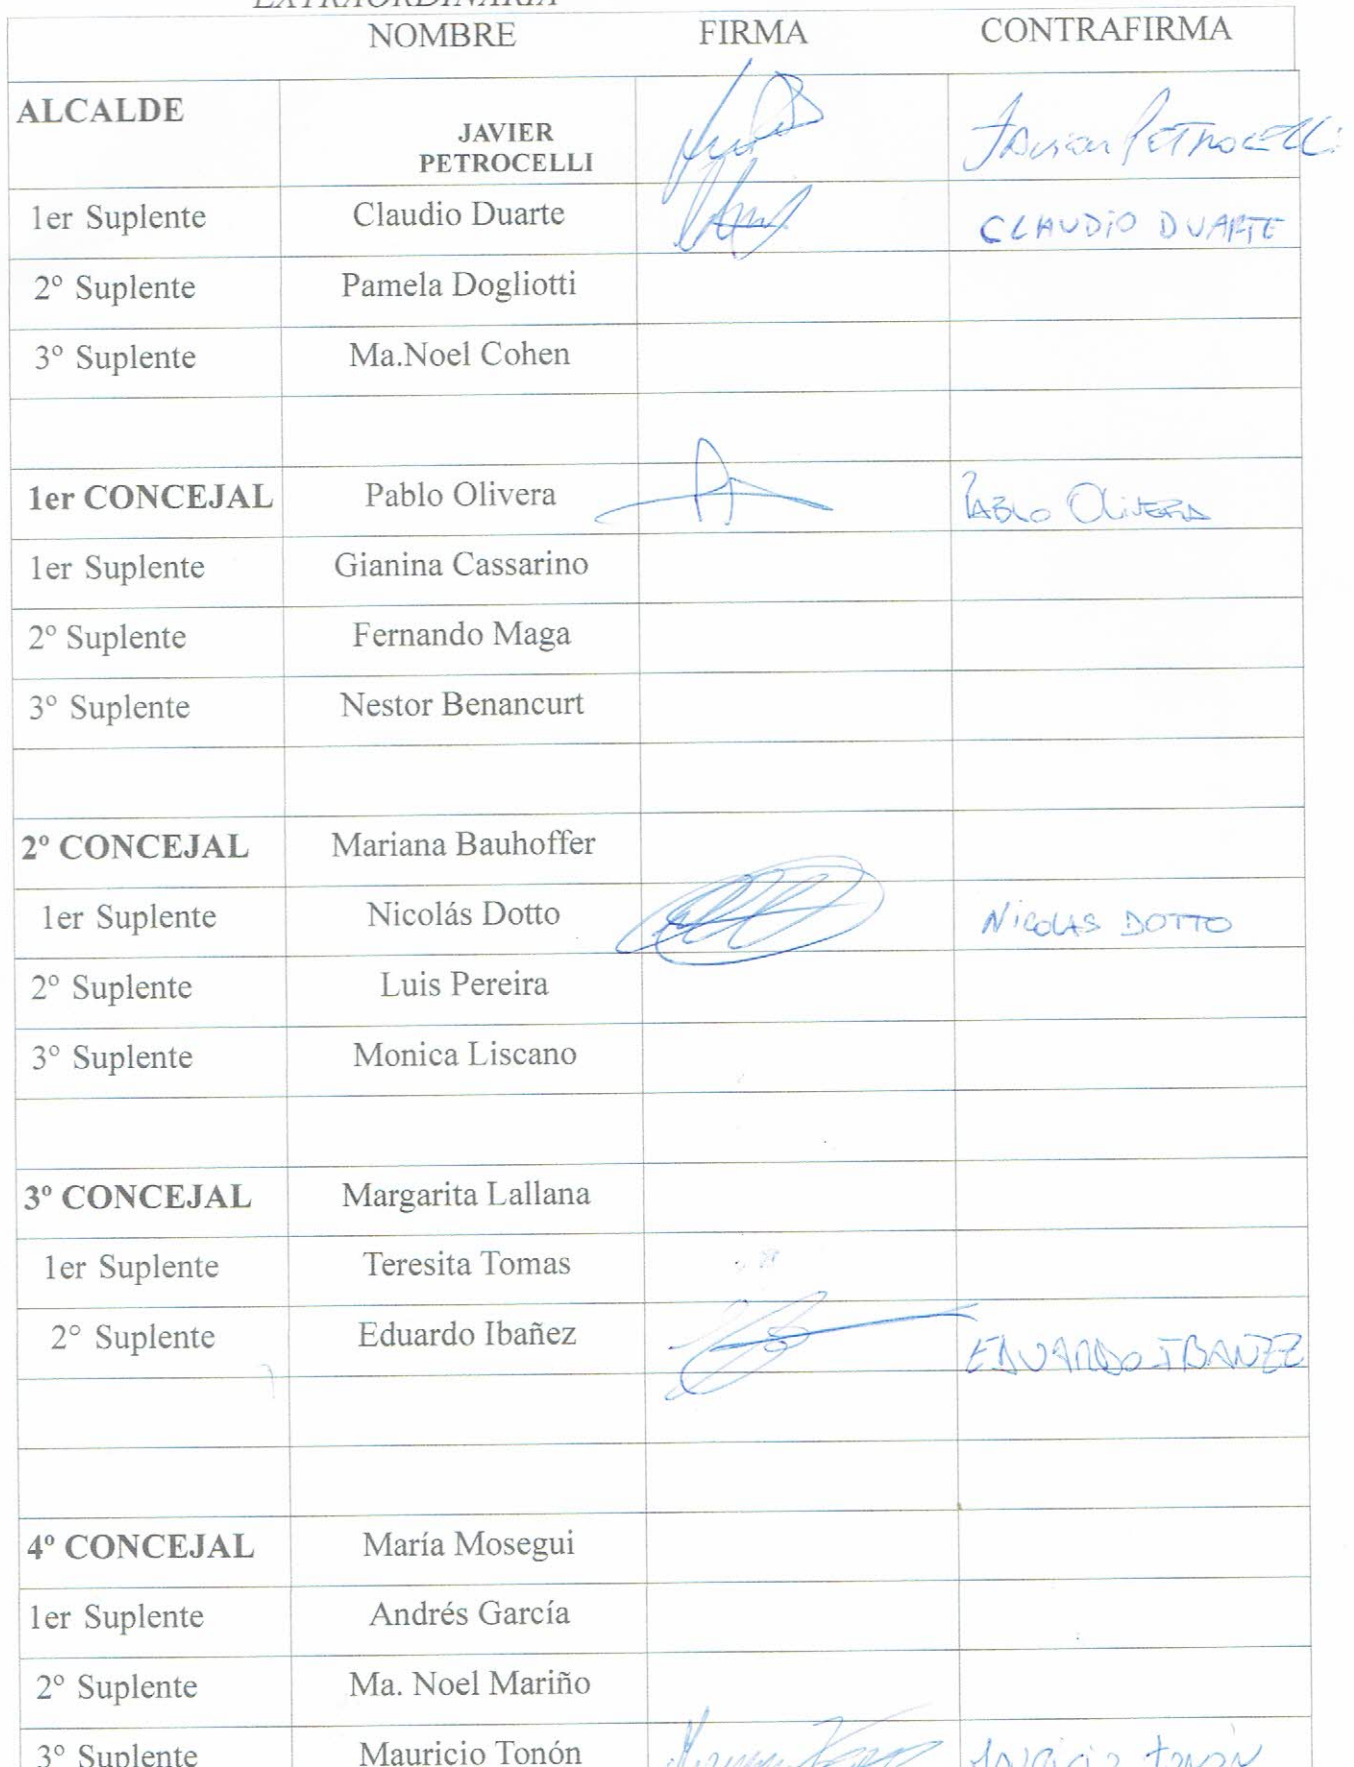 EXTRAORDINARIA
NOMBRE FIRMA CONTRAFIRMA
ALCALDE JAVIER PETROCELLI Javier PETROCELLI
1er Suplente Claudio Duarte CLAUDIO DUARTE
2º Suplente Pamela Dogliotti
3º Suplente Ma.Noel Cohen
1er CONCEJAL Pablo Olivera PABLO OLIVERA
1er Suplente Gianina Cassarino
2º Suplente Fernando Maga
3º Suplente Nestor Benancurt
2º CONCEJAL Mariana Bauhoffer
1er Suplente Nicolás Dotto NICOLAS DOTTO
2º Suplente Luis Pereira
3º Suplente Monica Liscano
3º CONCEJAL Margarita Lallana
1er Suplente Teresita Tomas
2° Suplente Eduardo Ibañez EDUARDO IBANEZ
4º CONCEJAL María Mosegui
1er Suplente Andrés García
2º Suplente Ma. Noel Mariño
3º Suplente Mauricio Tonón Tonón